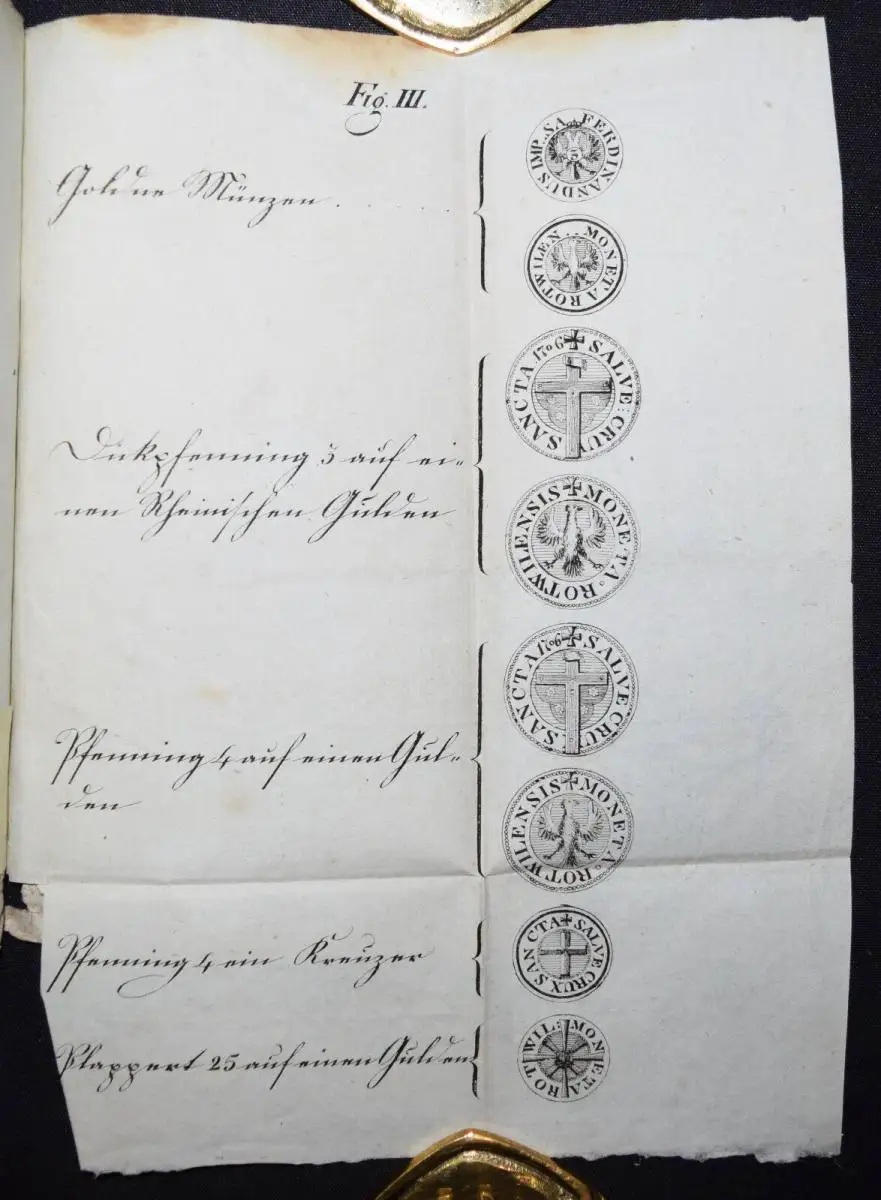 Fig. III.
Goldne Münzen . . . . .
FERDINANDUS IMP. SA.
MONETA ROTWILEN . .
Dickpfenning 3 auf ei=
nen Rheinischen Gulden
SALVE: CRUX SANCTA 1706
MONETA. ROTWILENSIS
Pfenning 4 auf einen Gul=
den
SALVE CRUX SANCTA 1706
MONETA. ROTWILENSIS
Pfenning 4 ein Kreuzer
SALVE CRUX SANCTA
Plappert 25 auf einen Gulden
MONETA ROTWIL: